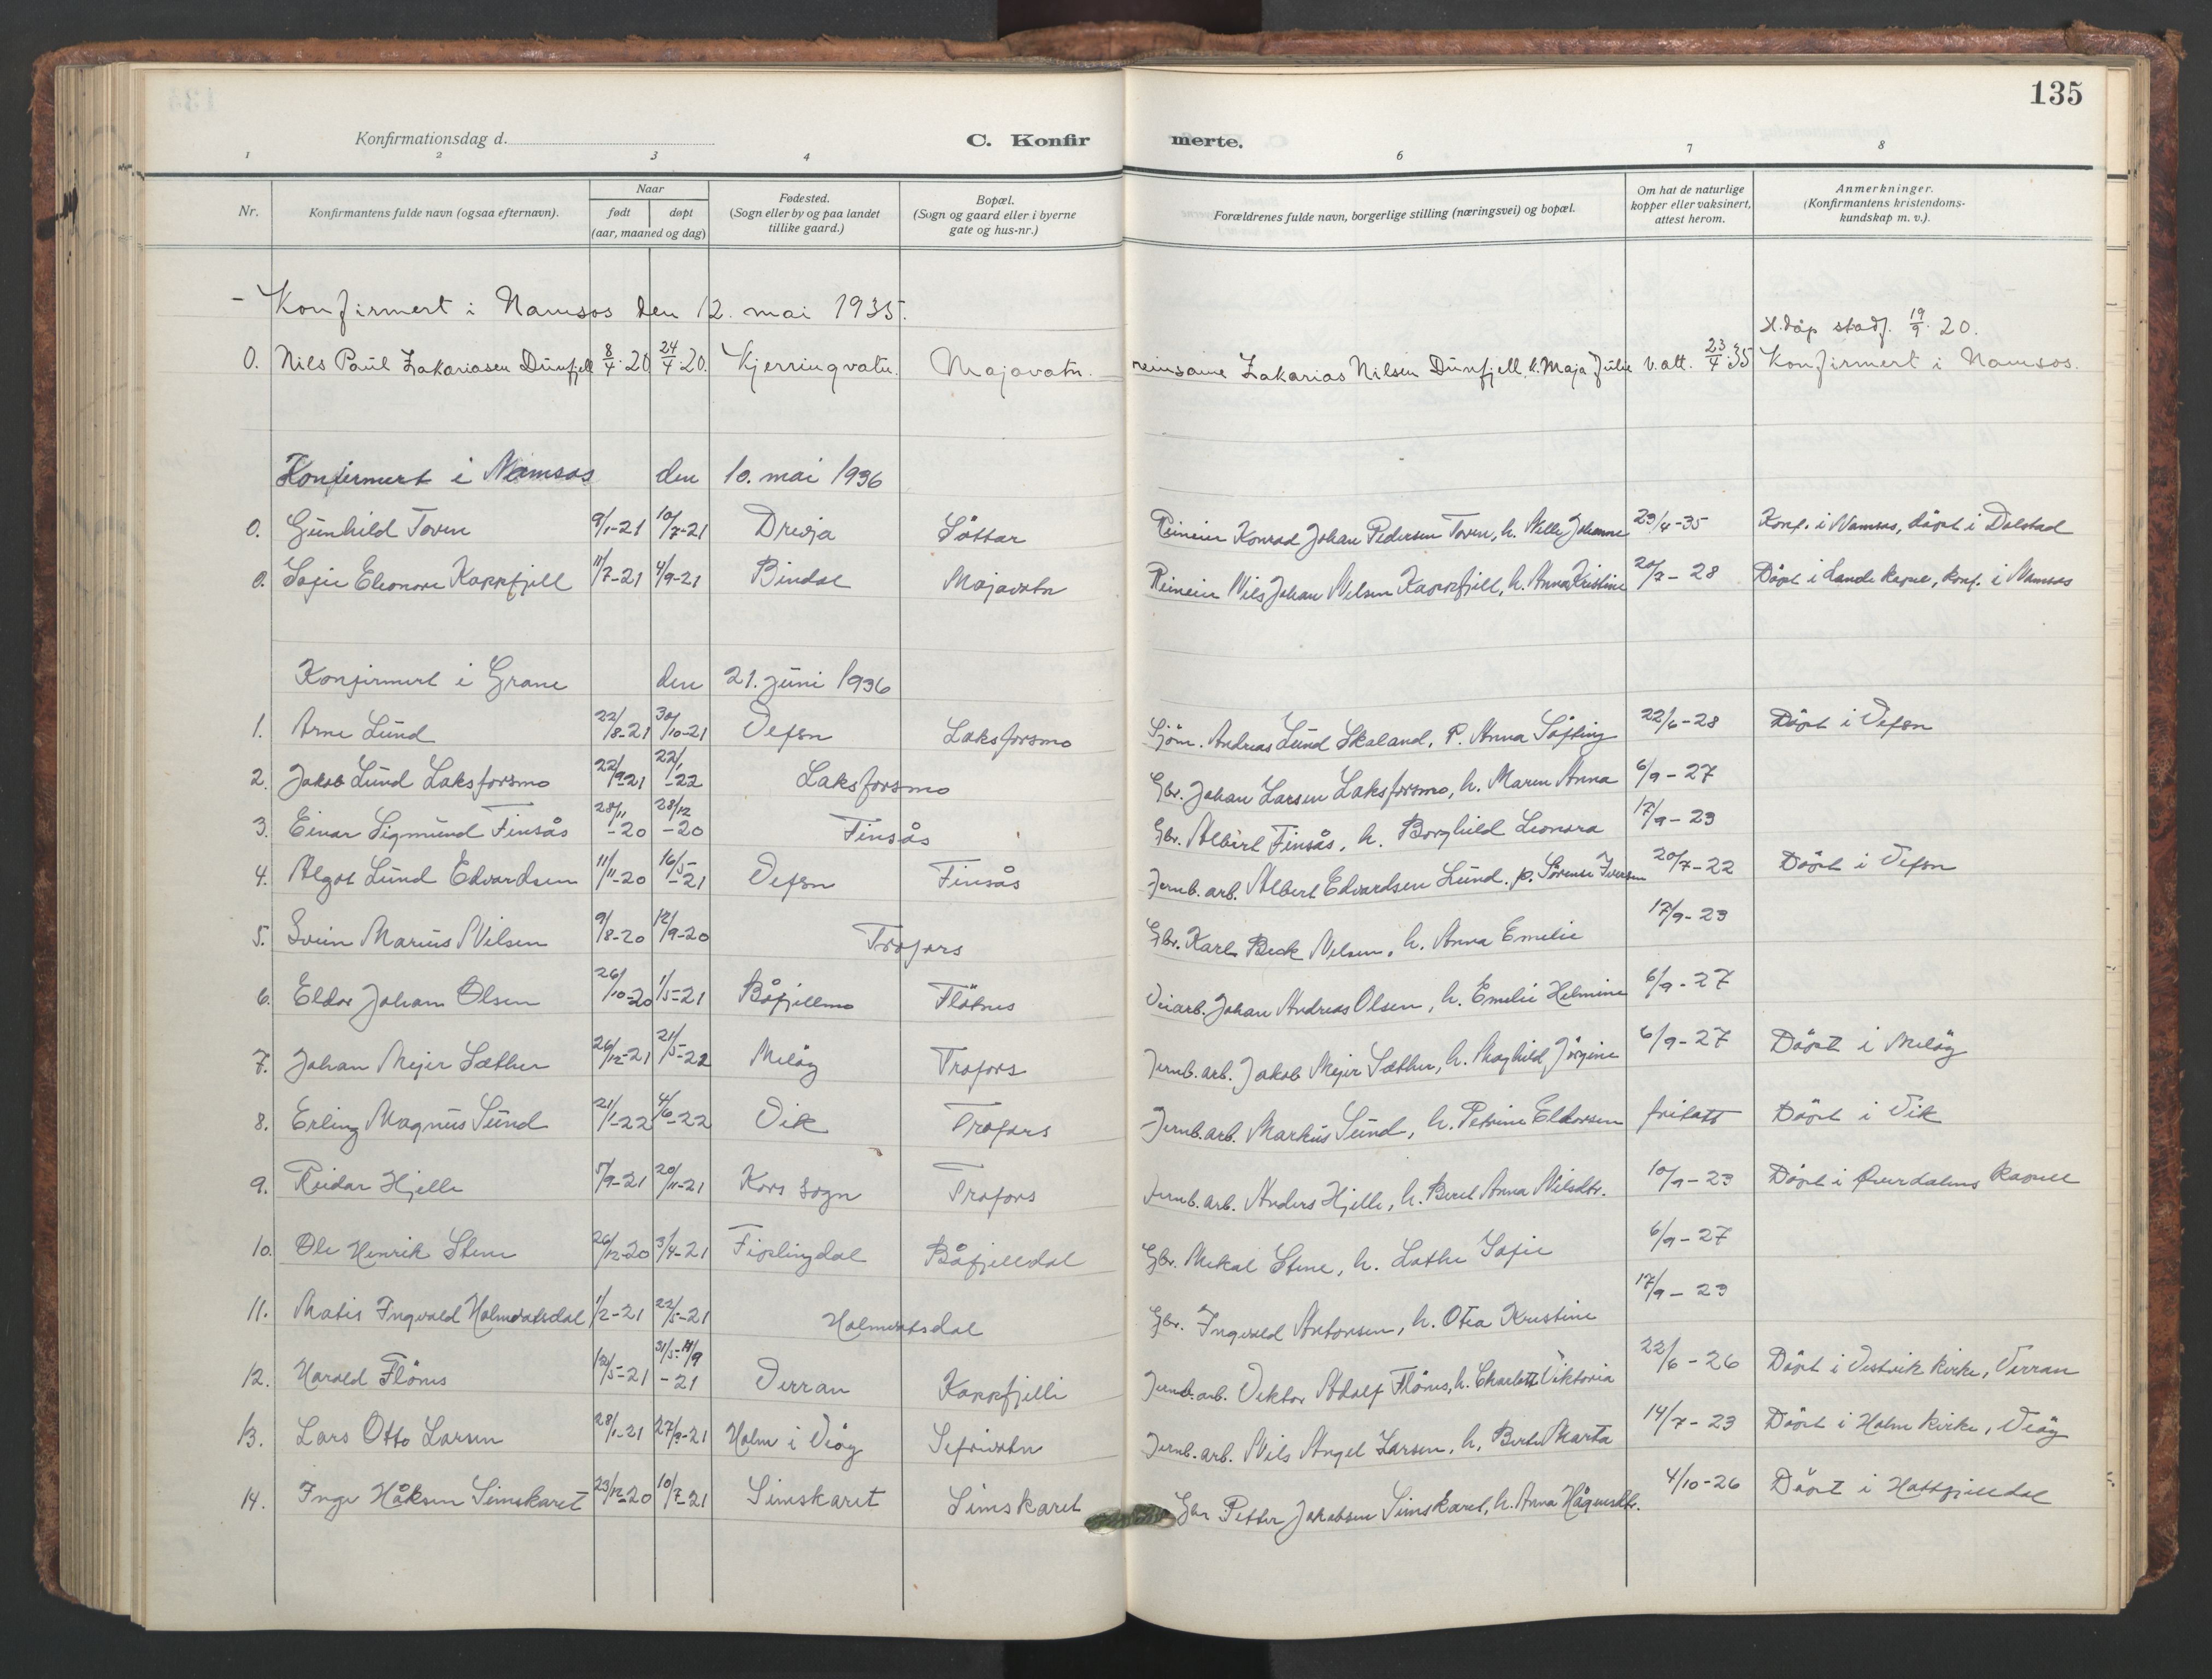 135
Konfirmationsdag d.
C. Konfir
merte.
1 2 3 4 6 7 8
Nr. Konfirmantens fulde navn (ogsaa efternavn). Naar født døpt (aar, maaned og dag) Fødested. (Sogn eller by og paa landet tillike gaard.) Bopæl. (Sogn og gaard eller i byerne gate og hus-nr.) Forældrenes fulde navn, borgerlige stilling (næringsvei) og bopæl. Om hat de naturlige kopper eller vaksinert, attest herom. Anmerkninger. (Konfirmantens kristendoms-kundskap m. v.).
- Konfirmert i Namsos den 12. mai 1935.
H.dåp stadf. 19/9 20.
0. Nils Paul Zakariasen Dunfjell 8/4 20 24/4 20. Kjerringvatn. Majavatn. reinsame Zakarias Nilsen Dunfjell, h. Maja Julie v. att. 23/4 35 Konfirmert i Namsos.
Konfirmert i Namsos den 10. mai 1936
0. Gunhild Toven 9/1-21 10/7-21 Drevja Söttar Reineier Konrad Johan Pedersen Toven, h. Nelly Johanne 23/4-35 Konf. i Namsos, döpt i Dolstad
0. Sofie Eleonore Kappfjell 11/7-21 4/9-21 Bindal Majavatn Reineier Nils Johan Nilsen Kappfjell, h. Anna Kristine 20/7-28 Döpt i Lande kapel, konf. i Namsos
Konfirmert i Grane den 21. juni 1936
1. Arne Lund 22/8-21 30/10-21 Vefsn Laksforsmo Sjöm. Andreas Lund Skaland, P. Anna Söfting 22/6-28 Döpt i Vefsn
2. Jakob Lund Laksforsmo 22/9-21 22/1-22 Laksforsmo Gbr. Johan Larsen Laksforsmo, h. Maren Anna 6/9-27
3. Einar Sigmund Finsås 28/11-20 28/12-20 Finsås Gbr. Albert Finsås, h. Borghild Leonora 17/9-23
4. Algot Lund Edvardsen 11/11-20 16/5-21 Vefsn Finsås Jernb. arb. Albert Edvardsen Lund. p. Sörense Iversen 20/7-22 Döpt i Vefsn
5. Svein Marius Nilsen 9/8-20 12/9-20 Trofors Gbr. Karl Beck Nilsen, h. Anna Emelie 17/9-23
6. Eldor Johan Olsen 26/10-20 1/5-21 Båfjellmo Flötnes Veiarb. Johan Andreas Olsen, h. Emelie Helmine 6/9-27
7. Johan Mejer Sæther 26/12-21 21/5-22 Melöy Trofors Jernb. arb. Jakob Mejer Sæther, h. Maghild Jörgine 6/9-27 Döpt i Melöy
8. Erling Magnus Sund 21/1-22 4/6-22 Vik Trofors Jernb. arb. Markus Sund, h. Petrine Eldorsen fritatt Döpt i Vik
9. Reidar Hjelle 5/9-21 20/11-21 Kors Sogn Trofors Jernb. arb. Anders Hjelle, h. Beret Anna Nilsdtr. 10/9-23 Döpt i Kapell
10. Ole Henrik Stene 26/12-20 3/4-21 Fiplingdal Båfjelldal Gbr. Mekal Stene, h. Lathe Sofie 6/9-27
11. Matis Ingvald Holmvatsdal 1/2-21 22/5-21 Holmvatsdal Gbr. Ingvald Antonsen, h. Otea Kristine 17/9-23
12. Harald Flönes 12/5-21 31/5-11/9-21 Verran Kappfjelli Jernb. arb. Viktor Adolf Flönes, h. Charlotte Viktoria 22/6-26 Döpt i Vestvik kirke, Verran
13. Lars Otto Larsen 28/1-21 27/3-21 Holm i Veöy Sefrivatn Jernb. arb. Nils Angel Larsen, h. Berte Marta 14/7-23 Döpt i Holm kirke, Veöy
14. Inge Håksen Simskaret 23/12-20 10/7-21 Simskaret Simskaret Gbr Petter Jakobsen Simskaret, h. Anna Håguensdtr. 4/10-26 Döpt i Hattfjelldal